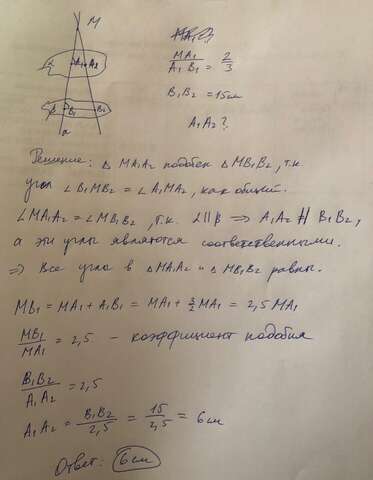 M
α A₁ A₂
β B₁ B₂
a
MA₁ / A₁B₁ = 2/3
B₁B₂ = 15см
A₁A₂?
Решение: △ MA₁A₂ подобен △ MB₁B₂, т.к.
угол ∠B₁MB₂ = ∠A₁MA₂, как общий.
∠MA₁A₂ = ∠MB₁B₂, т.к. α||β ⇒ A₁A₂ || B₁B₂,
а эти углы являются соответственными.
⇒ Все углы в △MA₁A₂ и △MB₁B₂ равны.
MB₁ = MA₁ + A₁B₁ = MA₁ + 3/2 MA₁ = 2,5 MA₁
MB₁ / MA₁ = 2,5 - коэффициент подобия
B₁B₂ / A₁A₂ = 2,5
A₁A₂ = B₁B₂ / 2,5 = 15 / 2,5 = 6см
Ответ: 6см